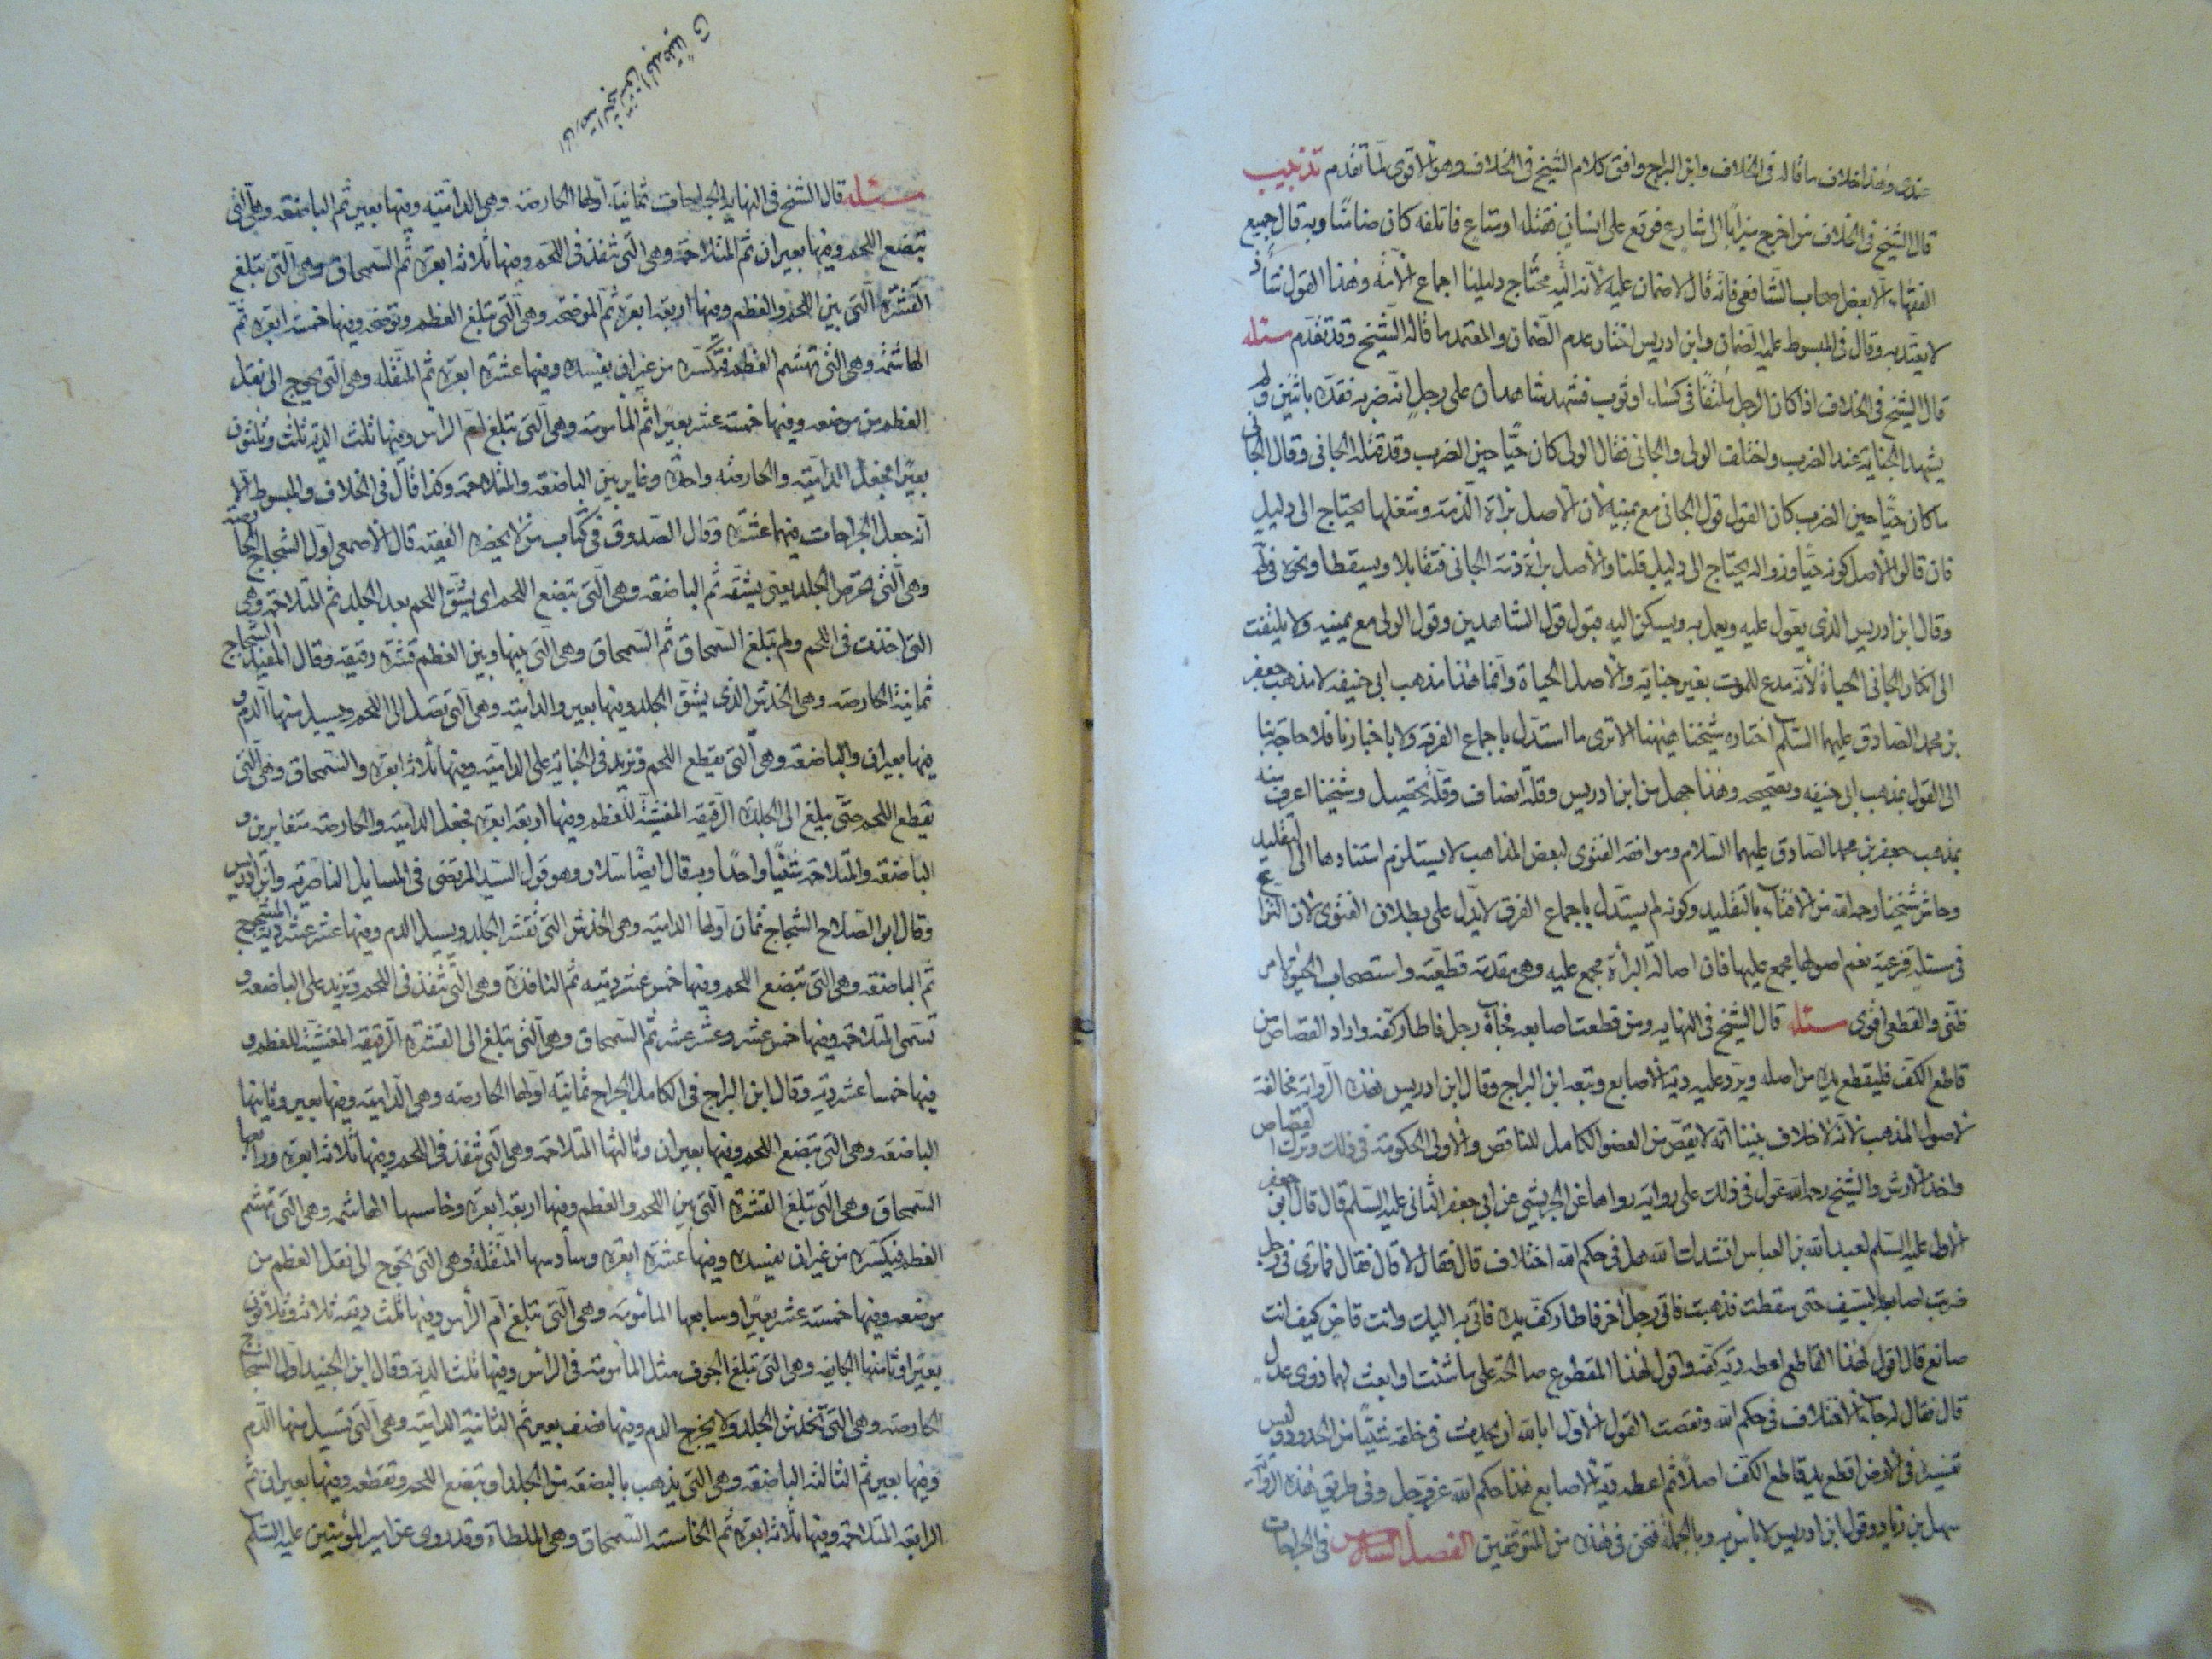 عندى وهذا خلاف ما قاله فى الخلاف وابن البراج وافق كلام الشيخ فى الخلاف وهو الاقوى لما تقدم تذنيب
قال الشيخ فى الخلاف من اخرج ميزابا الى شارع فوقع على انسان فقتله او متاع فاتلفه كان ضامنا وبه قال جميع
الفقهاء الا بعض اصحاب الشافعى فانه قال لا ضمان عليه لانه اليه محتاج دليلنا اجماع الامة وهذا القول شاذ
لا يعتد به وقال فى المبسوط عليه الضمان وابن ادريس اختار عدم الضمان والمعتمد ما قاله الشيخ وقد تقدم مسئله
قال الشيخ فى الخلاف اذا كان الرجل ملتفا فى كساء او ثوب فشهد شاهدان على رجل انه ضربه فقده باثنين ولم
يشهدا بجناية عند الضرب واختلف الولى والجانى فقال الولى كان حيا حين الضرب وقد قتله الجانى وقال الجانى
ما كان حيا حين الضرب كان القول قول الجانى مع يمينه لان الاصل براة الذمة وشغلها يحتاج الى دليل
فان قالوا الاصل كونه حيا وزواله يحتاج الى دليل قلنا والاصل براة ذمة الجانى فتقابلا وسقطا ونحوه فى ط
وقال ابن ادريس الذى يعول عليه ويعمل به ويسكن اليه قبول قول الشاهدين وقول الولى مع يمينه ولا يلتفت
الى انكار الجانى الحياة لانه مدع للموت بغير جناية والاصل الحياة وانما هذا مذهب ابى حنيفه لا مذهب جعفر
بن محمد الصادق عليهما السلم اختاره شيخنا هيهنا الا ترى ما استدل باجماع الفرقة ولا باخبارنا فلا حاجة بنا
الى القول بمذهب ابى حنيفه وتصحيحه وهذا جهل من ابن ادريس وقلة انصاف وقلة تحصيل وشيخنا اعرف منه
بمذهب جعفر بن محمد الصادق عليهما السلام وموافقة الفتوى لبعض المذاهب لا يستلزم استنادها الى التقليد
وحاش شيخنا رحمه الله من الافتاء بالتقليد وكونه لم يستدل باجماع الفرق لا يدل على بطلان الفتوى لان النزاع
فى مسئلة فرعية نعم اصولها مجمع عليها فان اصالة البراءة مجمع عليه وهى مقدمة قطعية واستصحاب الحيوة امر
ظنى والقطع اقوى مسئله قال الشيخ فى النهايه ومن قطعت اصابعه فجاءه رجل فاطار كفه واراد القصاص من
قاطع الكف فليقطع يده من اصله ويرد عليه دية الاصابع وتبعه ابن البراج وقال ابن ادريس هذه الرواية مخالفة
لاصول المذهب لانه لا خلاف بيننا انه لا يقص من العضو الكامل للناقص والاولى الحكومة فى ذلك وترك القصاص
واخذ الارش والشيخ رحمه الله عول فى ذلك على رواية رواها عن الحريشى عن ابى جعفر الثانى عليه السلم قال قال ابو جعفر
الاول عليه السلم لعبد الله بن العباس انشدك الله هل فى حكم الله اختلاف قال فقال لا قال فقال فما ترى فى رجل
ضربت اصابعه بالسيف حتى سقطت فذهبت فاتى رجل اخر فاطار كف يده فاتى به اليك وانت قاض كيف انت
صانع قال اقول لهذا القاطع اعطه دية كفه واقول لهذا المقطوع صالحه على ما شئت وابعث لهما ذوى عدل
قال فقال له جاء الاختلاف فى حكم الله ونقضت القول الاول ابا الله ان يحدث فى خلقه شيئا من الحدود وليس
تفسيره فى الارض اقطع يد قاطع الكف اصلا ثم اعطه دية الاصابع هذا حكم الله عز وجل وفى طريق هذه الرواية
سهل بن زياد وقول ابن ادريس لا باس به وبالجملة فنحن فى هذه من المتوقفين الفصل السادس فى الجراحات
مسئله قال الشيخ فى النهاية الجراحات ثمانية اولها الحارصة وهى الدامية وفيها بعير ثم الباضعه وهى التى
تبضع اللحم وفيها بعيران ثم المتلاحمة وهى التى تنفذ فى اللحم وفيها ثلاثة ابعرة ثم السمحاق وهى التى تبلغ
القشرة التى بين اللحم والعظم وفيها اربعة ابعرة ثم الموضحه وهى التى تبلغ العظم وتوضحه وفيها خمسة ابعرة ثم
الهاشمه وهى التى تهشم العظم فتكسره من غير ان يفسده وفيها عشرة ابعرة ثم المنقله وهى التى يحوج الى نقل
العظم من موضعه وفيها خمسة عشر بعيرا ثم المأمومة وهى التى تبلغ ام الراس وفيها ثلث الدية ثلث وثلثون
بعيرا فجعل الدامية والحارصة واحدة وغاير بين الباضعه والمتلاحمة وكذا قال فى الخلاف والمبسوط الا
انه جعل الجراحات فيهما عشرة وقال الصدوق فى كتاب من لا يحضره الفقيه قال الاصمعى اول الشجاج الحارصة
وهى التى تحرص الجلد يعنى يشقه ثم الباضعه وهى التى تبضع اللحم اى يشق اللحم بعد الجلد ثم المتلاحمة وهى
التى اخذت فى اللحم ولم تبلغ السمحاق ثم السمحاق وهى التى بينها وبين العظم قشرة رقيقه وقال المفيد الشجاج
ثمانية الحارصه وهى الخدش الذى يشق الجلد وفيها بعير والدامية وهى التى تصل الى اللحم ويسيل منها الدم و
فيها بعيران والباضعة وهى التى يقطع اللحم وتزيد فى الجناية على الدامية وفيها ثلاثة ابعرة والسمحاق وهى التى
يقطع اللحم حتى يبلغ الى الجلدة الرقيقه المغشية للعظم وفيها اربعة ابعرة فجعل الدامية والحارصه متغايرين و
الباضعه والمتلاحمة شيئا واحدا وبه قال ايضا سلار وهو قول السيد المرتضى فى المسايل الناصرية وابن ادريس
وقال ابو الصلاح الشجاج ثمان اولها الدامية وهى الخدش التى تقشر الجلد ويسيل الدم وفيها عشر عشر دية المشجوج
ثم الباضعه وهى التى تبضع اللحم وفيها خمس عشر ديته ثم النافذة وهى التى تنفذ فى اللحم وتزيد على الباضعه و
تسمى المتلاحمة وفيها خمس عشر وعشر عشر ثم السمحاق وهى التى تبلغ الى القشرة الرقيقه المغشية للعظم و
فيها خمسا عشر دية وقال ابن البراج فى الكامل الجراح ثمانية اولها الحارصه وهى الدامية وفيها بعير وثانيها
الباضعه وهى التى تبضع اللحم وفيها بعيران وثالثها المتلاحمة وهى التى تنفذ فى اللحم وفيها ثلاثة ابعرة ورابعها
السمحاق وهى التى تبلغ القشرة التى بين اللحم والعظم وفيها اربعة ابعرة وخامسها الهاشمه وهى التى تهشم
العظم فيكسره من غير ان يفسده وفيها عشرة ابعرة وسادسها المنقلة وهى التى تحوج الى نقل العظم من
موضعه وفيها خمسة عشر بعيرا وسابعها المأمومة وهى التى تبلغ ام الرأس وفيها ثلث ديته ثلاثة وثلاثون
بعيرا وثامنها الجايفه وهى التى تبلغ الجوف مثل المأمومة فى الرأس وفيها ثلث الدية وقال ابن الجنيد اول الشجاج
الحارصة وهى التى تخدش الجلد ولا يخرج الدم وفيها نصف بعير ثم الثانية الدامية وهى التى تسيل منها الدم
وفيها بعير ثم الثالثة الباضعه وهى التى يذهب بالبضعة من الجلد او تبضع اللحم وتقطعه وفيها بعيران ثم
الرابعة المتلاحمة وفيها ثلاثة ابعرة ثم الخامسة السمحاق وهى الملطاة وقد روى عن امير المؤمنين عليه السلم